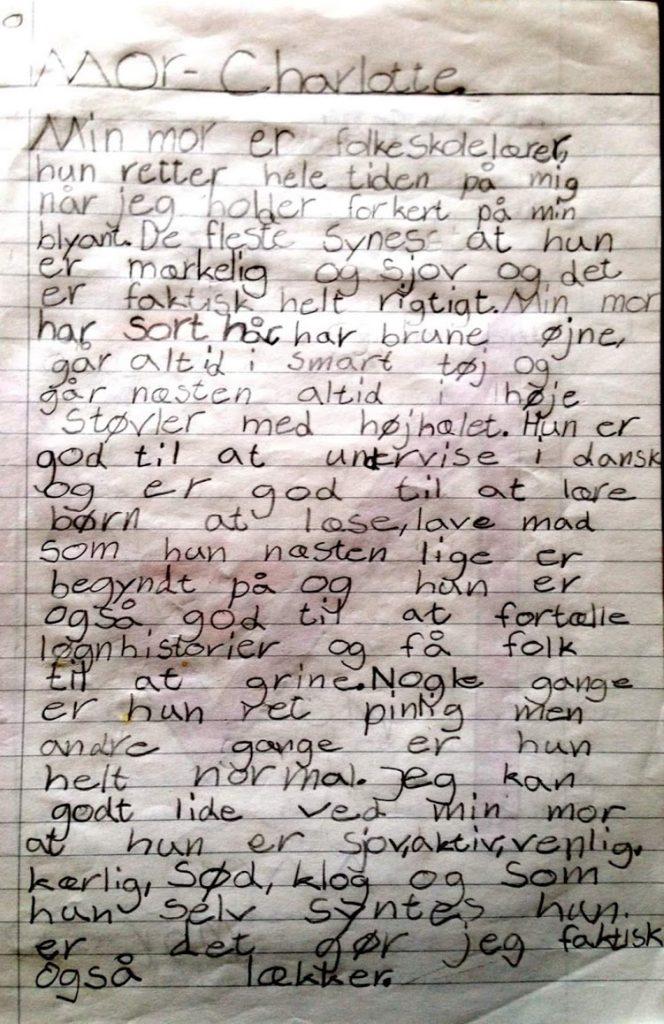 Mor- Charlotte.
Min mor er folkeskolelærer,
hun retter hele tiden på mig
når jeg holder forkert på min
blyant. De fleste synes at hun
er mærkelig og sjov og det
er faktisk helt rigtigt. Min mor
har sort hår har brune øjne,
går altid i smart tøj og
går næsten altid i høje
støvler med højhælet. Hun er
god til at untrvise i dansk
og er god til at lære
børn at læse, lave mad
som hun næsten lige er
begyndt på og hun er
også god til at fortælle
løgnhistorier og få folk
til at grine. Nogle gange
er hun ret pinlig men
andre gange er hun
helt normal. jeg kan
godt lide ved min mor
at hun er sjov, aktiv, venlig,
kærlig, sød, klog og som
hun selv syntes hun.
er det gør jeg faktisk
også lækker.